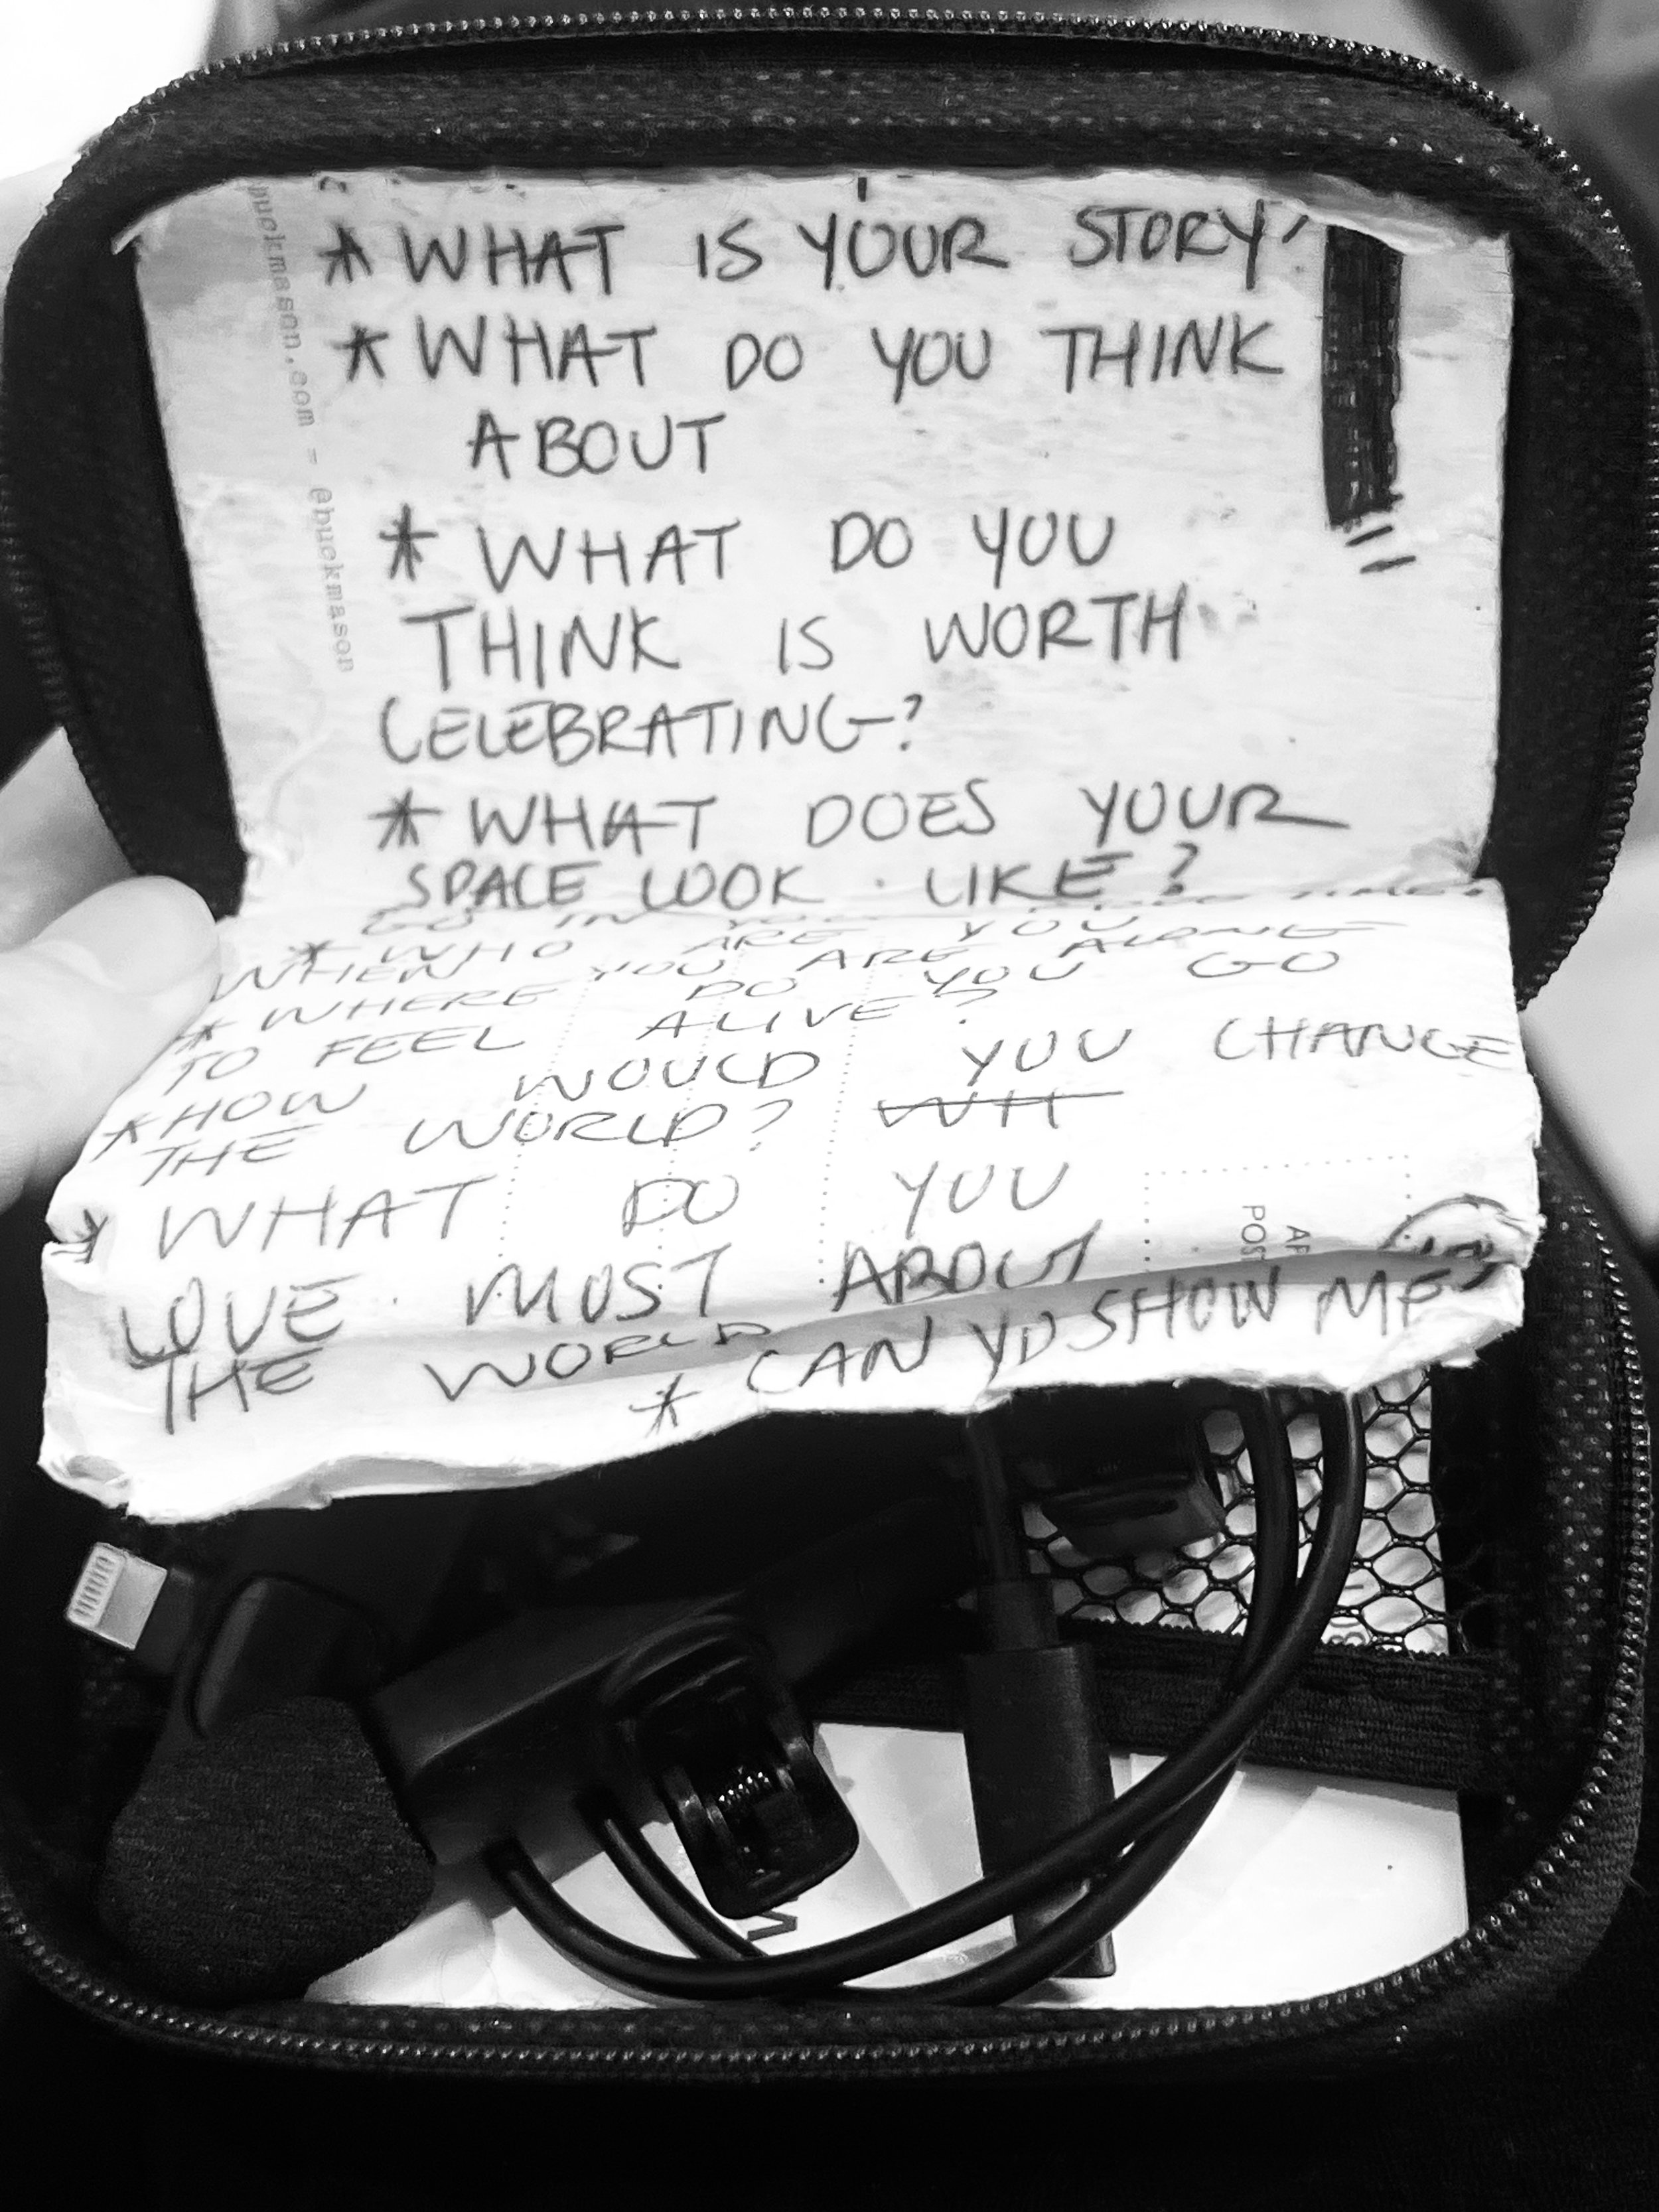 * WHAT IS YOUR STORY?
* WHAT DO YOU THINK
ABOUT
* WHAT DO YOU
THINK IS WORTH
CELEBRATING?
* WHAT DOES YOUR
SPACE LOOK LIKE?
GO IN YOUR TIME?
* WHO ARE YOU
WHEN YOU ARE ALONE
* WHERE DO YOU GO
TO FEEL ALIVE?
* HOW WOULD YOU CHANGE
THE WORLD? WH
* WHAT DO YOU
LOVE MOST ABOUT
THE WORLD
* CAN YO SHOW ME?
buckmason.com - @buckmason